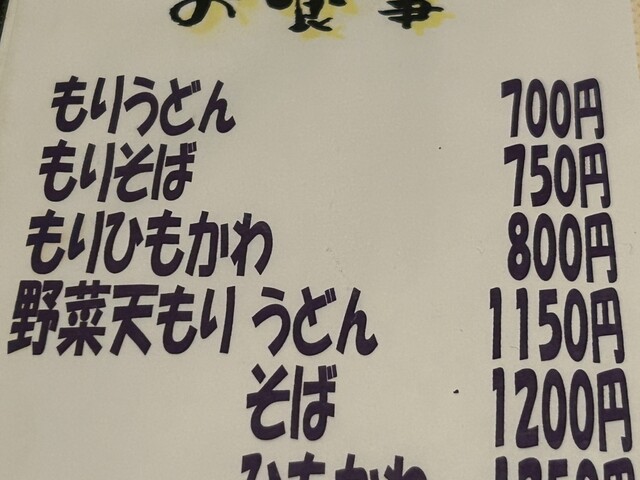 お食事
もりうどん 700円
もりそば 750円
もりひもかわ 800円
野菜天もり うどん 1150円
そば 1200円
ひもかわ 1250円